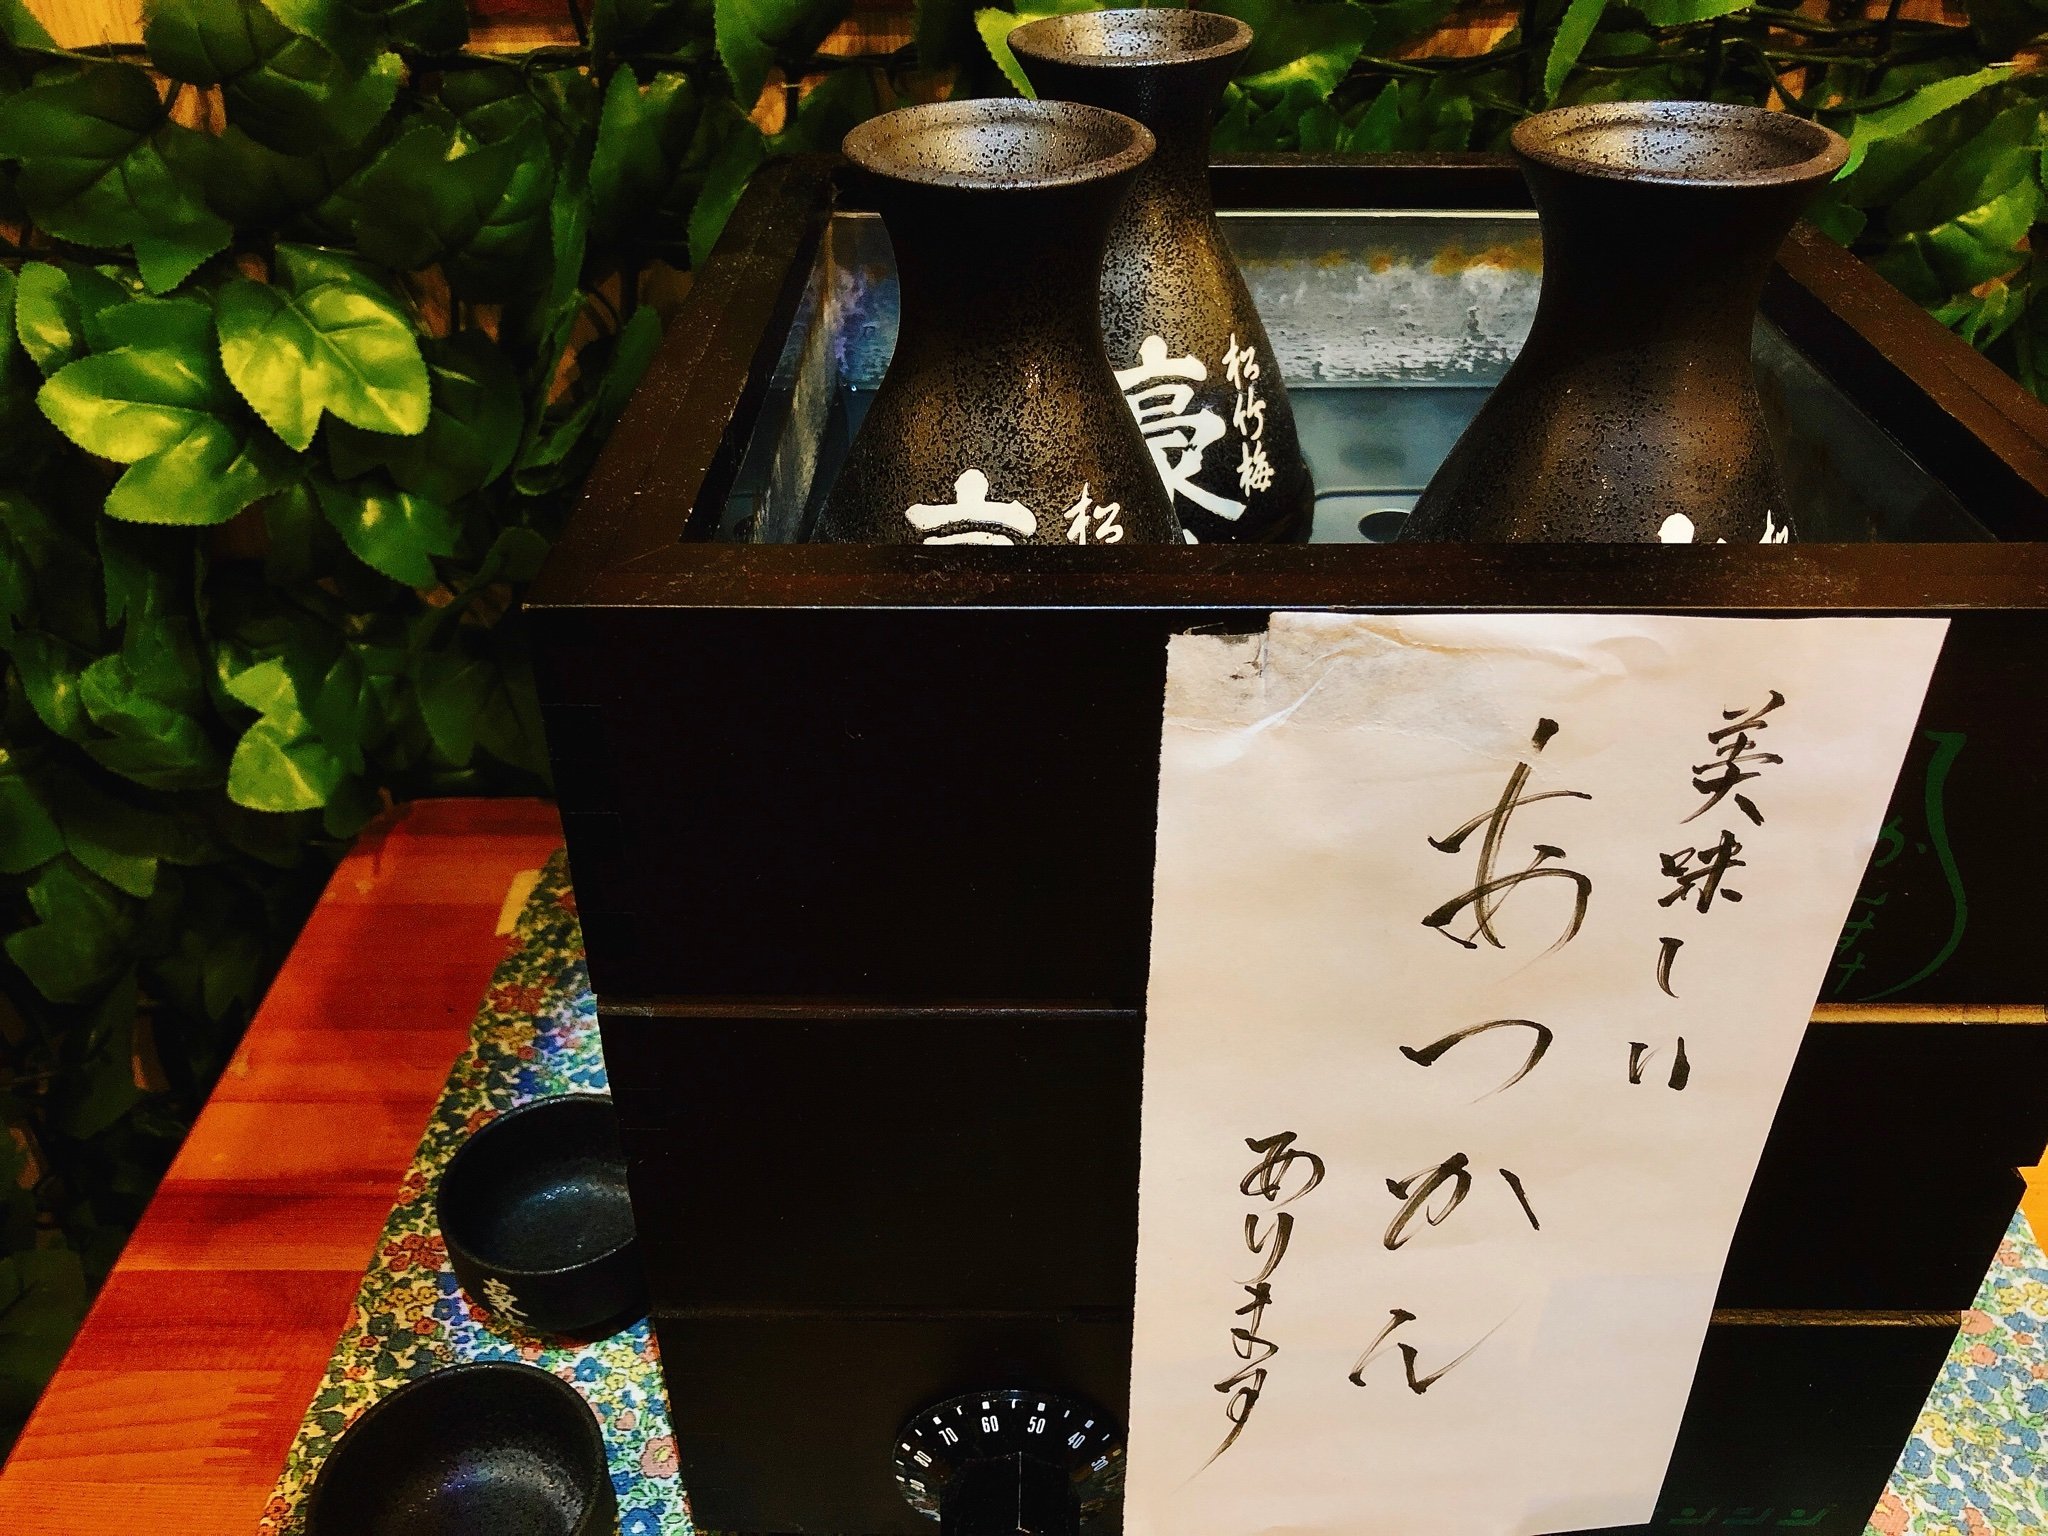 松竹梅
豪
松
美味しい
あつかん
あります
豪
80 70 60 50 40 30